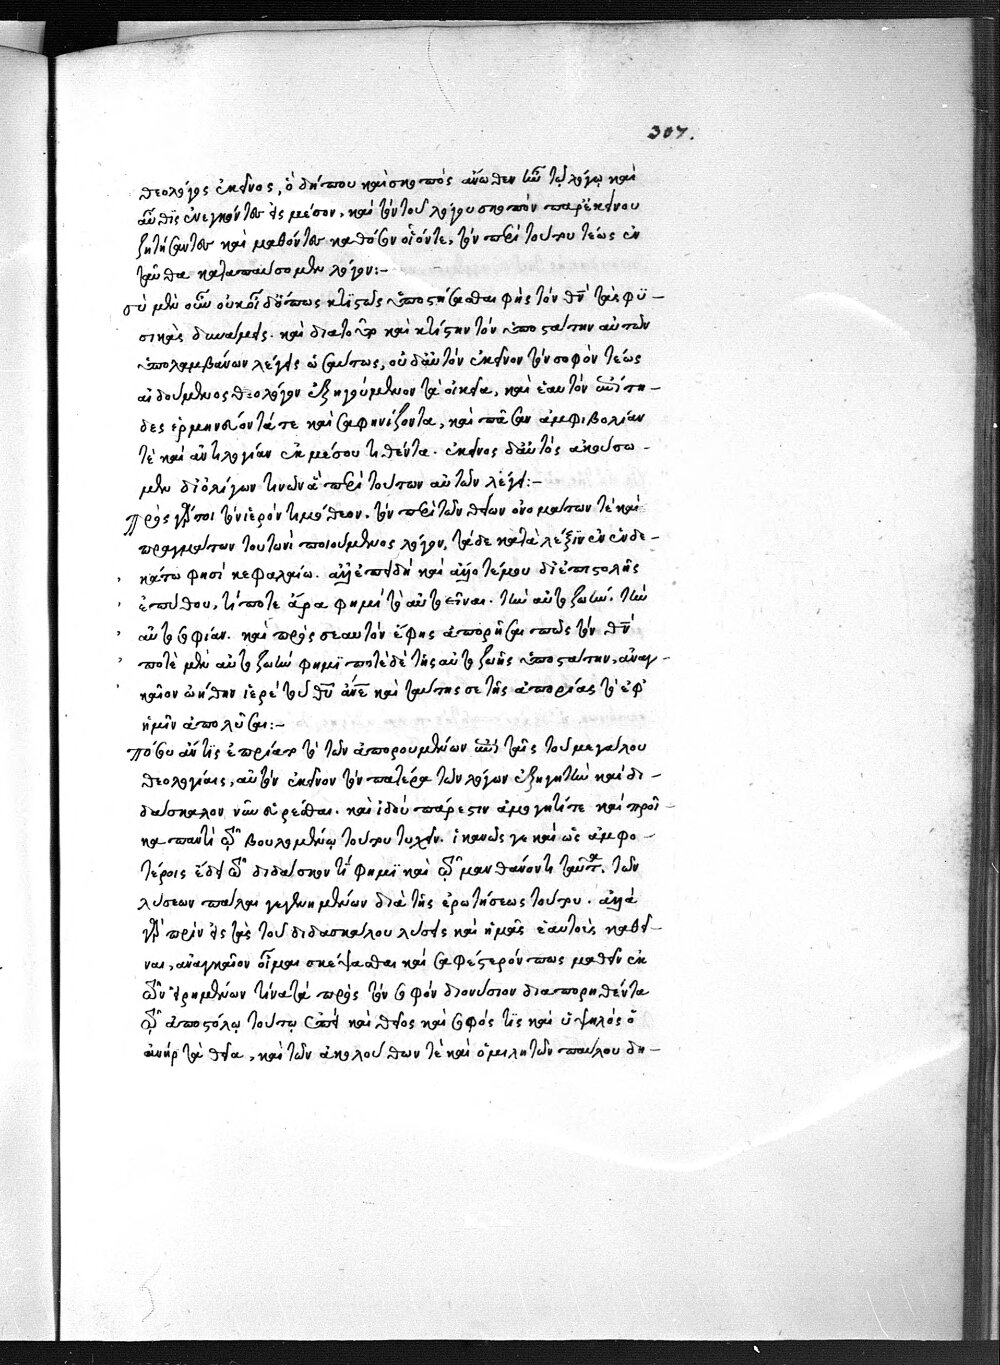 307.
θεολόγος ἐκεῖνος, ὁ δήπου καὶ σκοπὸς ἄνωθεν ἦν τῷ λόγῳ καὶ
αὖθις ἐνεγκόντες εἰς μέσον, καὶ τὸν τοῦ λόγου σκοπὸν παρ' ἐκείνου
ζητήσαντες καὶ μαθόντες καθόσον οἷόντε, τὸν περὶ τούτου τέως ἐν
ταῦθα καταπαύσομεν λόγον:-
σὺ μὲν οὖν οὐκ οἶδ' ὅπως κτιστῶς ὑποστήσασθαι φῂς τὸν θν̅ τὰς φυ-
σικὰς δυνάμεις. καὶ διατοῦτο καὶ κτίστην τὸν ὑποστάτην αὐτῶν
ὑπολαμβάνων λέγεις ὡσαύτως, οὐδ' αὐτὸν ἐκεῖνον τὸν σοφὸν τέως
αἰδούμενος θεολόγον ἐξηγούμενον τὰ οἰκεῖα, καὶ ἑαυτὸν ἐπίτη-
δες ἑρμηνεύοντά τε καὶ σαφηνίζοντα, καὶ πᾶσαν ἀμφιβολίαν
τὲ καὶ ἀντιλογίαν ἐκ μέσου τιθέντα. ἐκεῖνος δ' αὐτὸς ἀκούσω-
μεν δι' ὀλίγων τινῶν ἃ περὶ τούτων αὐτῶν λέγει:-
Πρὸς γάρ τοι τὸν ἱερὸν τιμόθεον. τὸν περὶ τῶν θείων ὀνομάτων τὲ καὶ
πραγμάτων τουτονὶ ποιούμενος λόγον, τάδε κατὰ λέξιν ἐν ἑνδε-
κάτω φησὶ κεφαλαίω. ἀλλ' ἐπειδὴ καὶ ἄλλοτέ μου δι' ἐπιστολῆς
ἐπύθου, τί ποτε ἄρα φημὶ τὸ αὐτοεῖναι. τὴν αὐτοζωὴν. τὴν
αὐτοσοφίαν. καὶ πρὸς σεαυτὸν ἔφης ἀπορῆσαι πῶς τὸν θν̅
ποτὲ μὲν αὐτοζωὴν φημὶ ποτὲ δὲ τῆς αὐτοζωῆς ὑποστάτην, ἀναγ-
καῖον ᾠήθην ἱερὲ τοῦ θυ̅ ἄνε̅ καὶ ταύτης σε τῆς ἀπορίας τὸ ἐφ'
ἡμῖν ἀπολῦσαι:-
Πόσου ἄν τις ἐπρίατο τῶν ἀπορουμένων ἐπὶ ταῖς τοῦ μεγάλου
θεολογίαις, αὐτὸν ἐκεῖνον τὸν πατέρα τῶν λόγων ἐξηγητὴν καὶ δι-
δάσκαλον νῦν εὑρέσθαι. καὶ ἰδοὺ πάρεστιν ἀμογητίτε καὶ προῖ-
κα παντὶ τῷ βουλομένῳ τούτου τυχεῖν. ἱκανῶς γε καὶ ὡς ἀμφο-
τέροις ἔδει τῷ διδάσκοντί φημι καὶ τῷ μανθάνοντι ταῦτα. τῶν
λύσεων πάλαι γεγενημένων διὰ τῆς ἐρωτήσεως τούτου. ἀλλὰ
γὰρ πρὶν εἰς τὰς τοῦ διδασκάλου λύσεις καὶ ἡμᾶς ἑαυτοὺς καθεῖ-
ναι, ἀναγκαῖον οἶμαι σκέψασθαι καὶ σαφέστερόν πως μαθεῖν ἐκ
τῶν εἰρημένων τίνα τὰ πρὸς τὸν σοφὸν διονύσιον διαπορηθέντα
τῷ ἀποστόλῳ τούτῳ ἐπεὶ καὶ θεῖος καὶ σοφός τις καὶ ὑψηλὸς ὁ
ἀνὴρ τὰ θεῖα, καὶ τῶν ἀκολούθων τὲ καὶ ὁμιλητῶν παύλου δη-